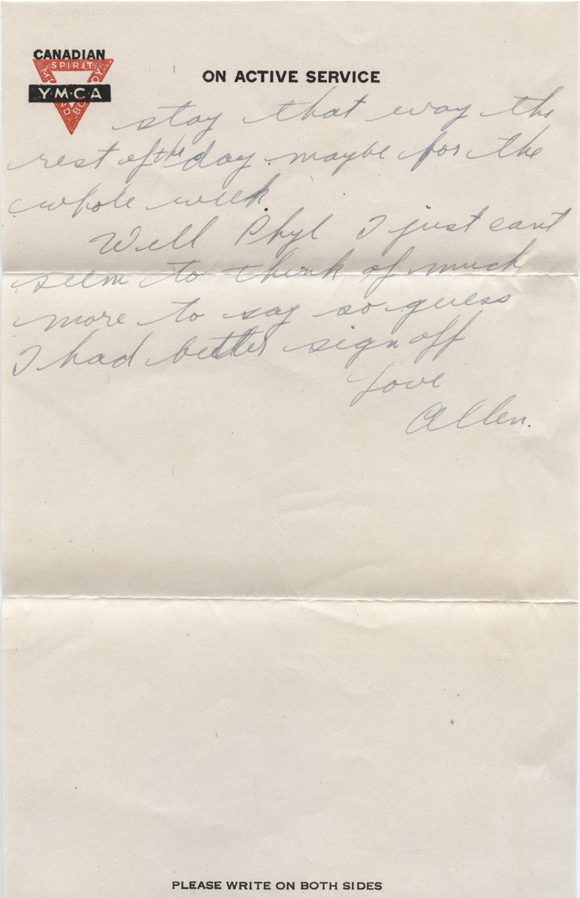 CANADIAN
SPIRIT
Y·M·C·A
ON ACTIVE SERVICE
stay that way the
rest of the day maybe for the
whole week.
Well Phyl I just cant
seem to think of much
more to say so guess
I had better sign off
Love
Allen.
PLEASE WRITE ON BOTH SIDES